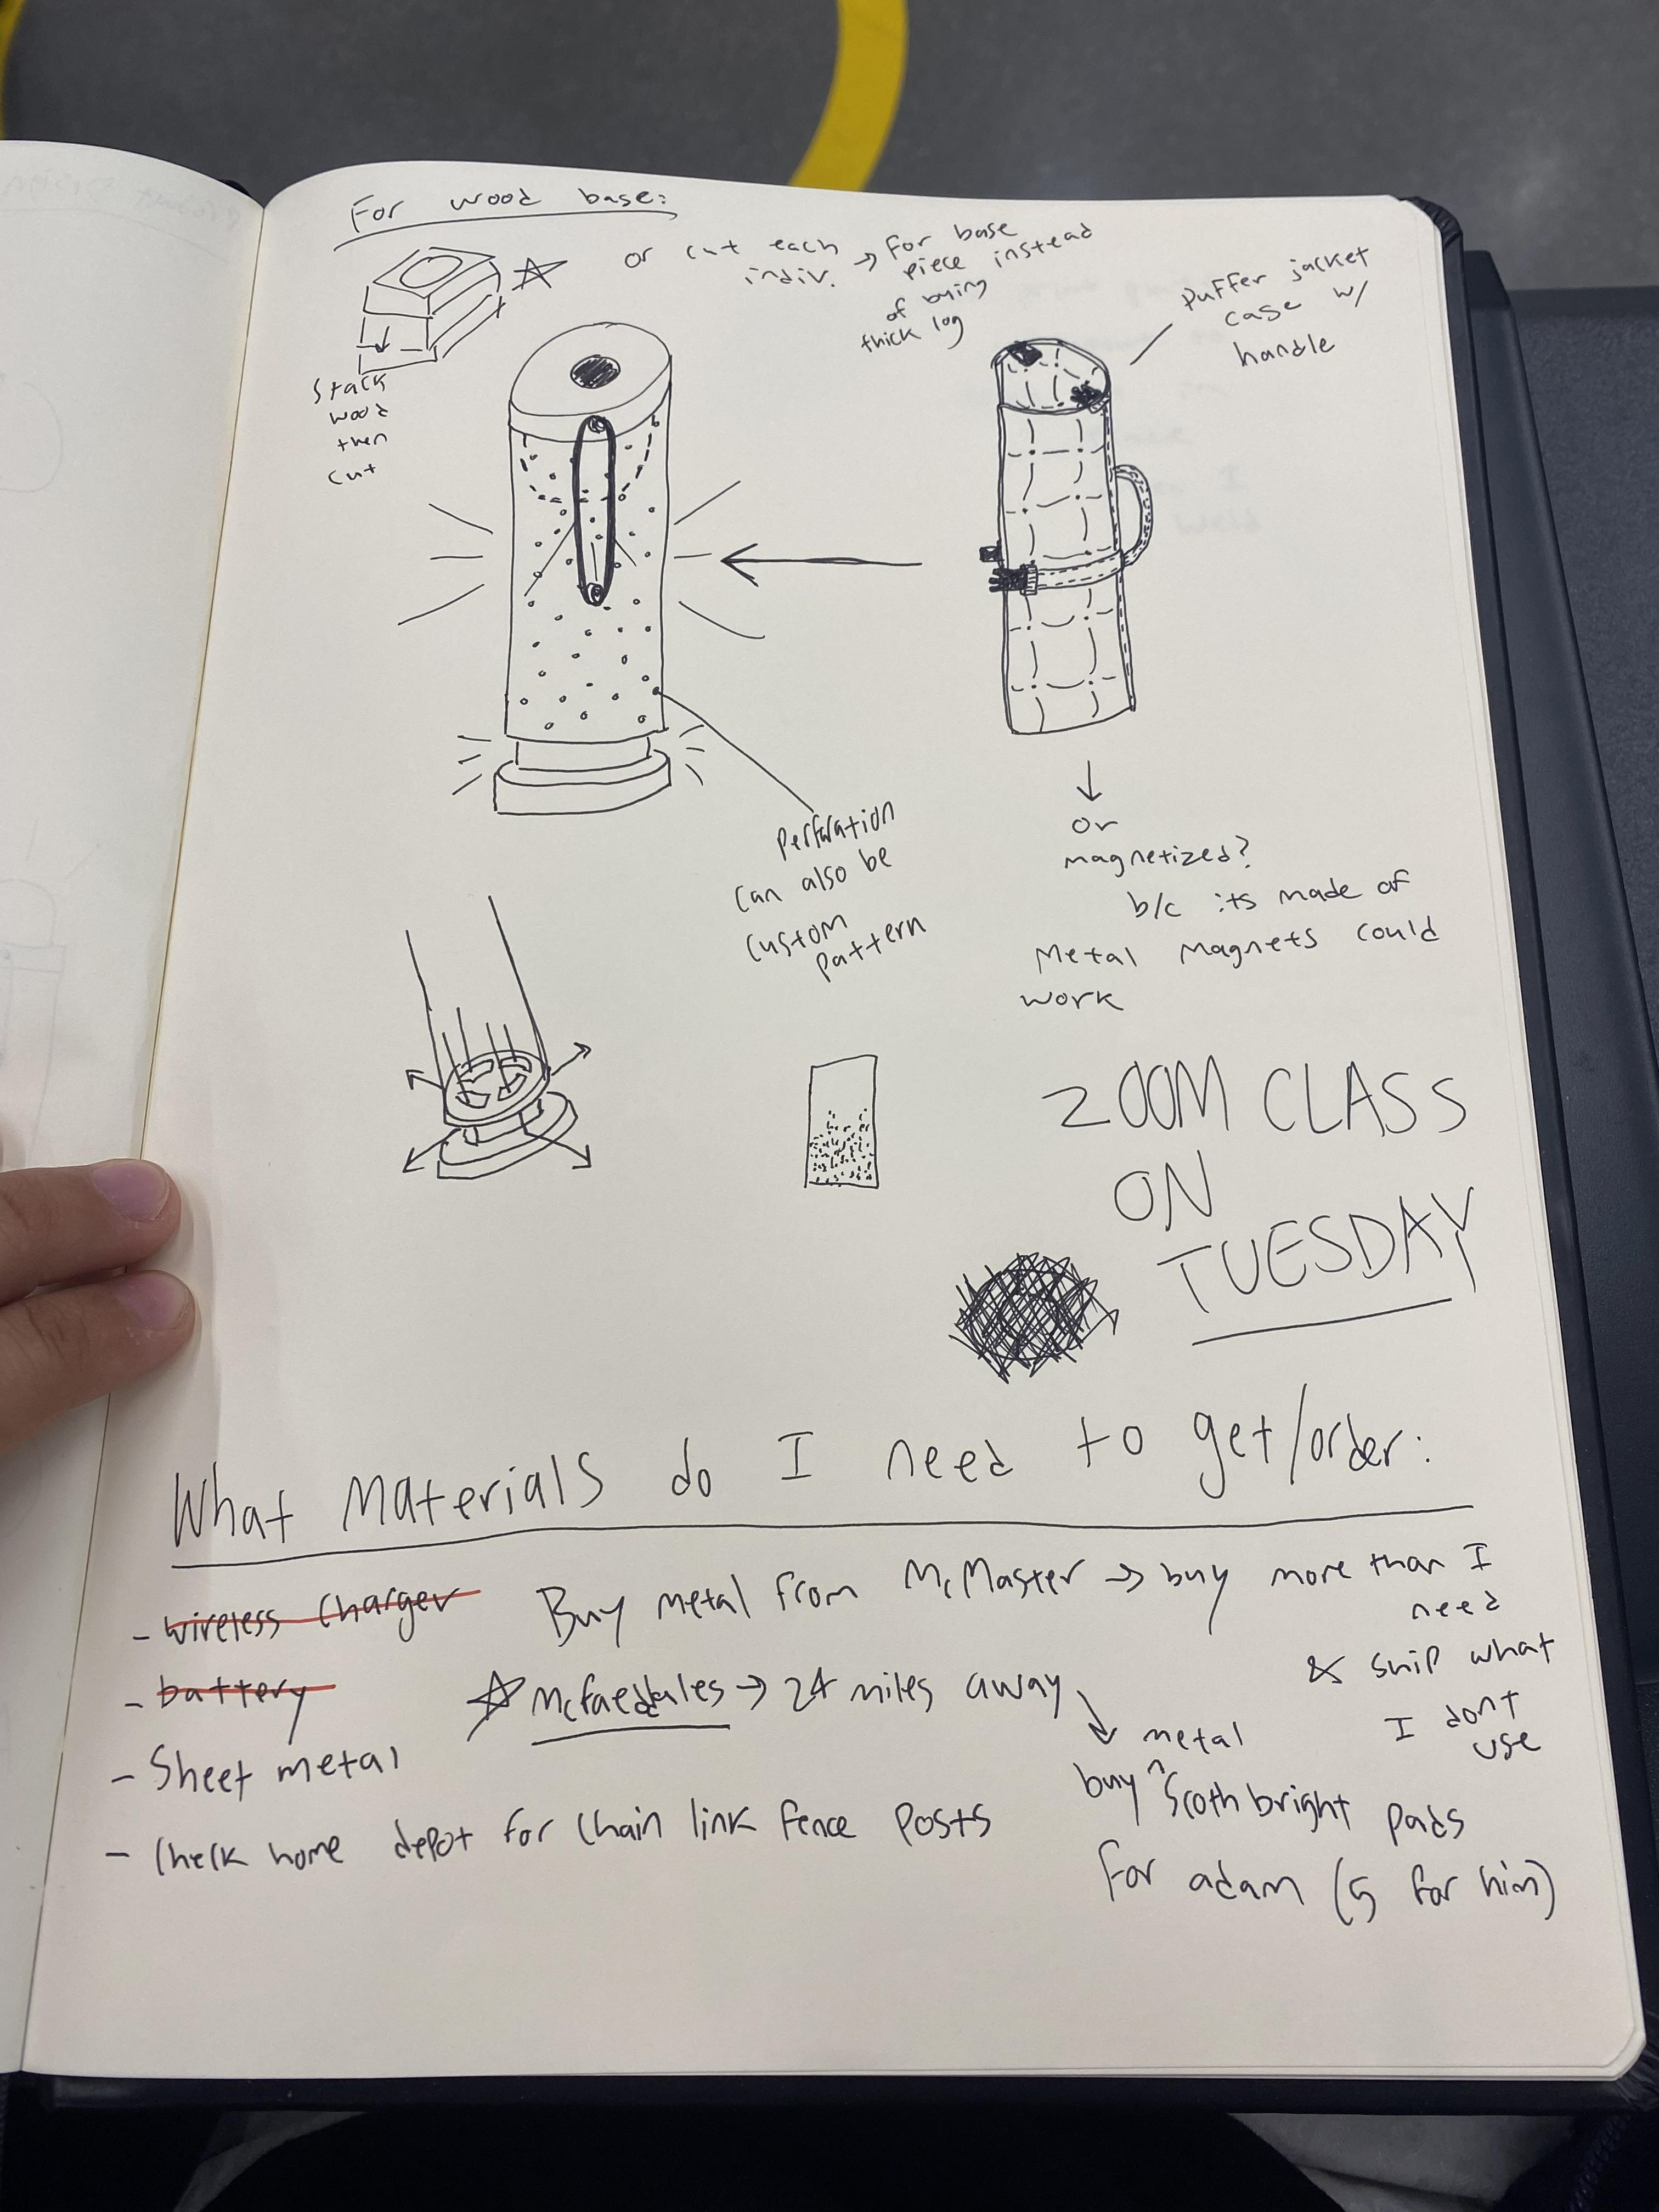 For wood base:
or cut each
indiv.
→ For base
piece instead
of buying
thick log
Stack
wood
then
cut
puffer jacket
case w/
handle
Perforation
can also be
custom
pattern
or
magnetized?
b/c its made of
Metal Magnets could
work
ZOOM CLASS
ON
TUESDAY
What Materials do I need to get/order:
- wireless charger
- battery
- Sheet metal
- Check home depot for chain link fence posts
Buy metal from McMaster → buy more than I
need
& snip what
I dont
use
→ 24 miles away
metal
buy ^ Scoth bright pads
for adam (5 for him)